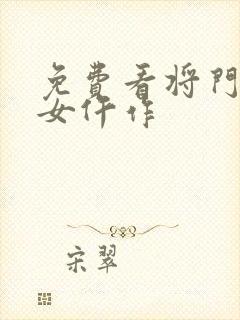 免費看将門
女仵作
宋翠